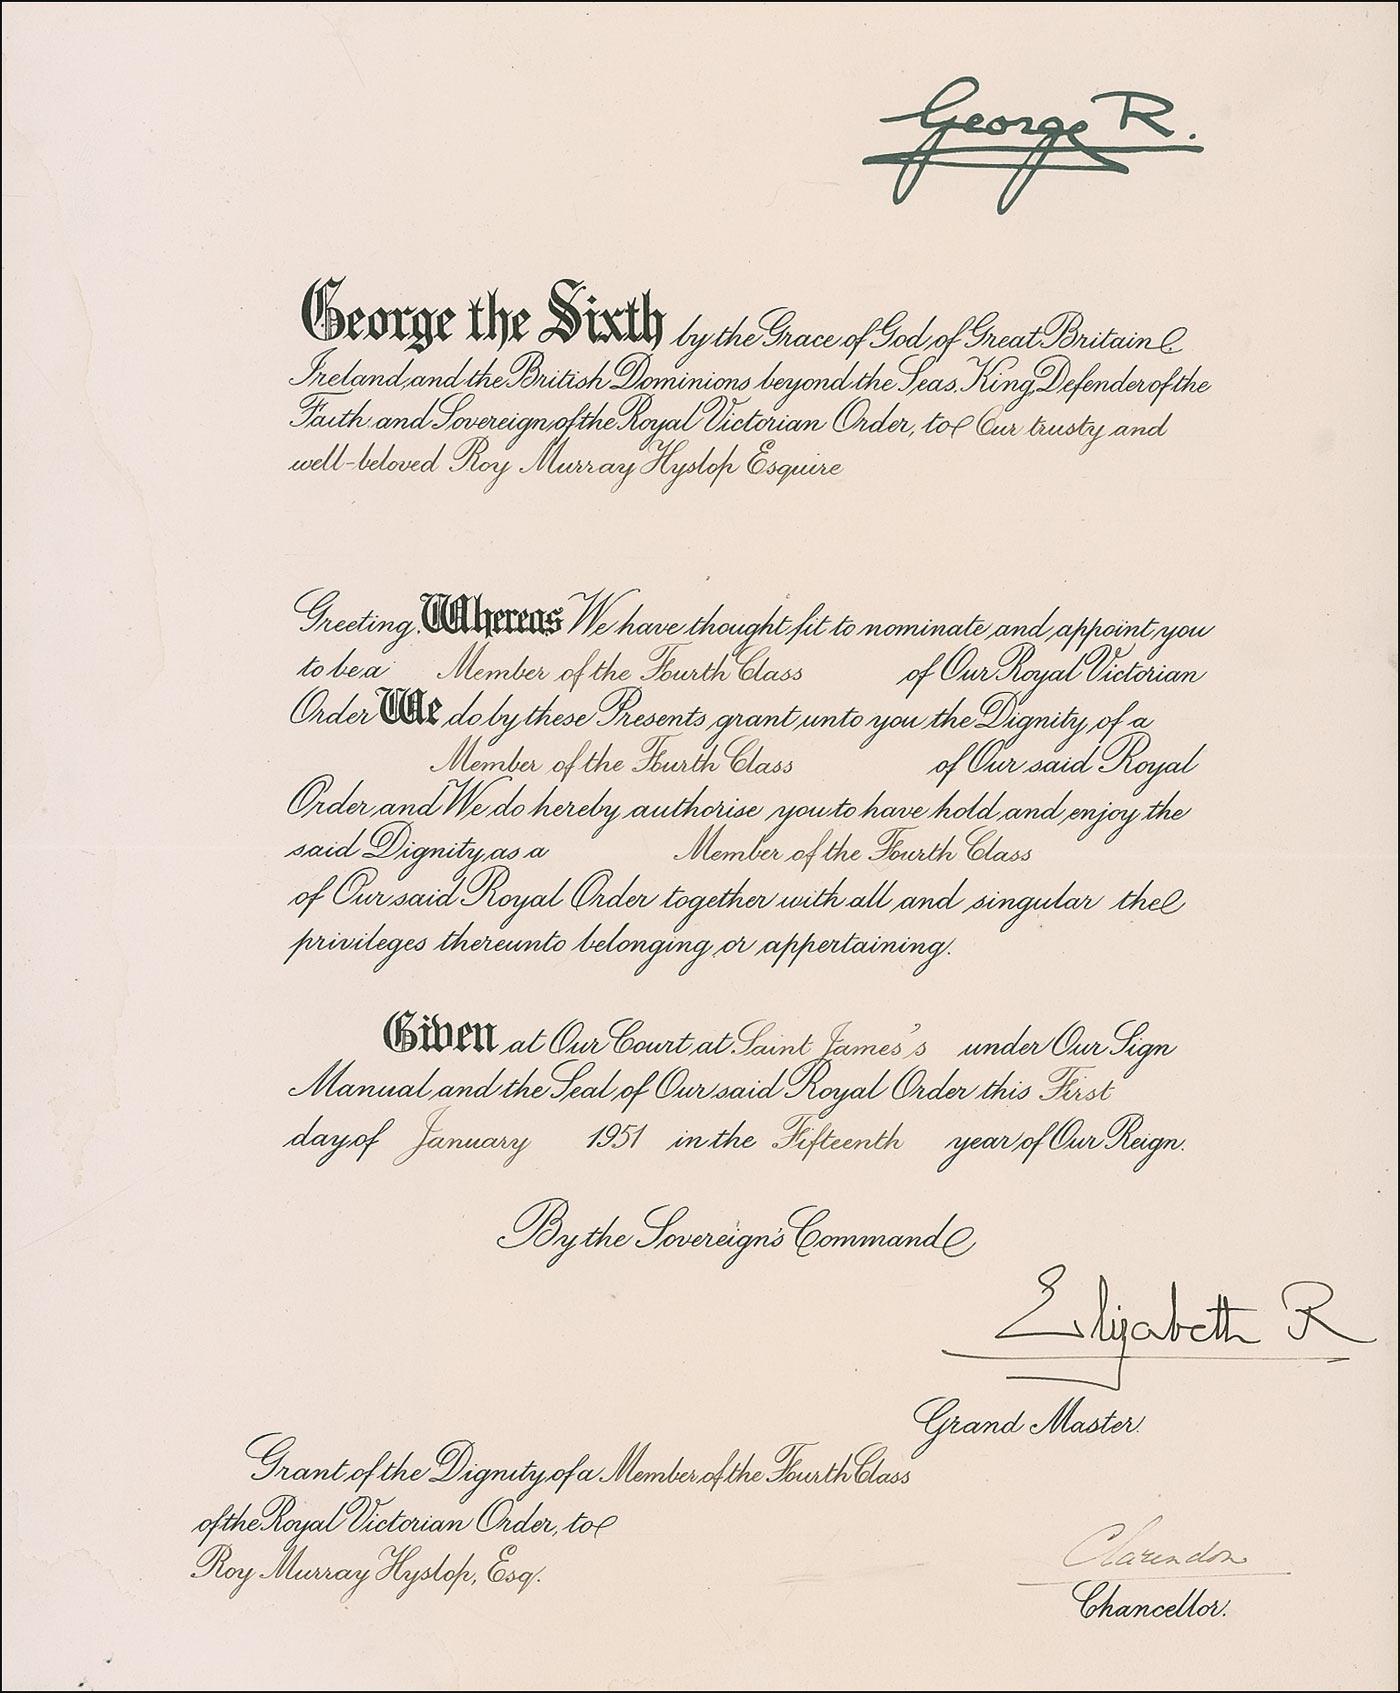 George R.
George the Sixth by the Grace of God, of Great Britain
Ireland, and the British Dominions beyond the Seas, King, Defender of the
Faith and Sovereign of the Royal Victorian Order, to Our trusty and
well-beloved Roy Murray Hyslop Esquire
Greeting. Whereas We have thought fit to nominate and appoint you
to be a Member of the Fourth Class of Our Royal Victorian
Order We do by these Presents grant unto you the Dignity of a
Member of the Fourth Class of Our said Royal
Order and We do hereby authorise you to have hold and enjoy the
said Dignity as a Member of the Fourth Class
of Our said Royal Order together with all and singular the
privileges thereunto belonging or appertaining.
Given at Our Court at Saint James's under Our Sign
Manual and the Seal of Our said Royal Order this First
day of January 1951 in the Fifteenth year of Our Reign.
By the Sovereign's Command
Elizabeth R
Grand Master.
Grant of the Dignity of a Member of the Fourth Class
of the Royal Victorian Order, to
Roy Murray Hyslop, Esq.
Clarendon
Chancellor.